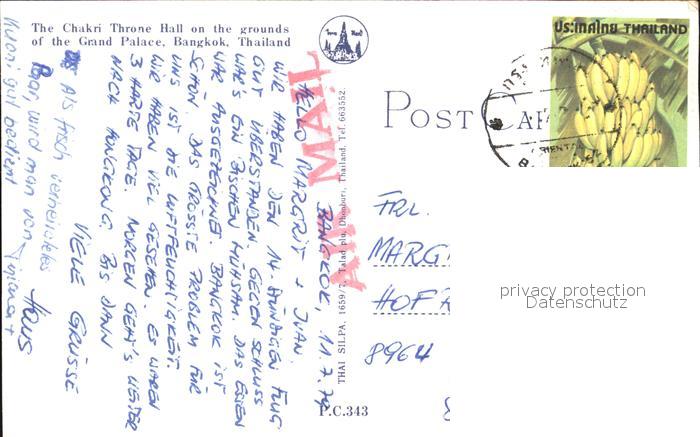 The Chakri Throne Hall on the grounds
of the Grand Palace, Bangkok, Thailand
AIR MAIL
BANGKOK, 11.7.79
HELLO MARGRIT + JUAN
WIR HABEN DEN 14-STÜNDIGEN FLUG
GUT ÜBERSTANDEN. GEGEN SCHLUSS
WAR'S EIN BISCHEN MÜHSAM. DAS ESSEN
WAR AUSGEZEICHNET. BANGKOK IST
SCHÖN. DAS GRÖSSTE PROBLEM FÜR
UNS IST DIE LUFTFEUCHTIGKEIT.
WIR HABEN VIEL GESEHEN. ES WAREN
3 HARTE TAGE. MORGEN GEHT'S WEITER
NACH HONGKONG BIS DANN
VIELE GRÜSSE
Als frisch verheiratetes
Paar wird man von
Kuoni gut bedient
THAI SILPA, 1659/7, Talad plu, Dhonburi, Thailand. Tel. 663552
P.C.343
POST CAR
ประเทศไทย THAILAND
ORIENTAL
FRL.
MARG
HOF
8964
privacy protection
Datenschutz